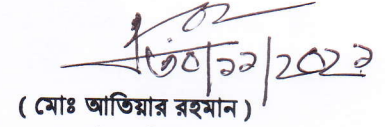 ৩০/১১/২০২২
( মোঃ আতিয়ার রহমান )